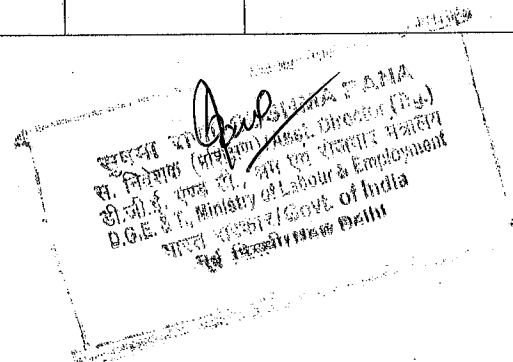 सुषमा राणा/SUSHMA RANA
स. निदेशक (प्रशिक्षण) Asst. Director (Trg.)
डी.जी.ई. एण्ड टी., श्रम एवं रोजगार मंत्रालय
D.G.E. & T., Ministry of Labour & Employment
भारत सरकार/Govt. of India
नई दिल्ली/New Delhi